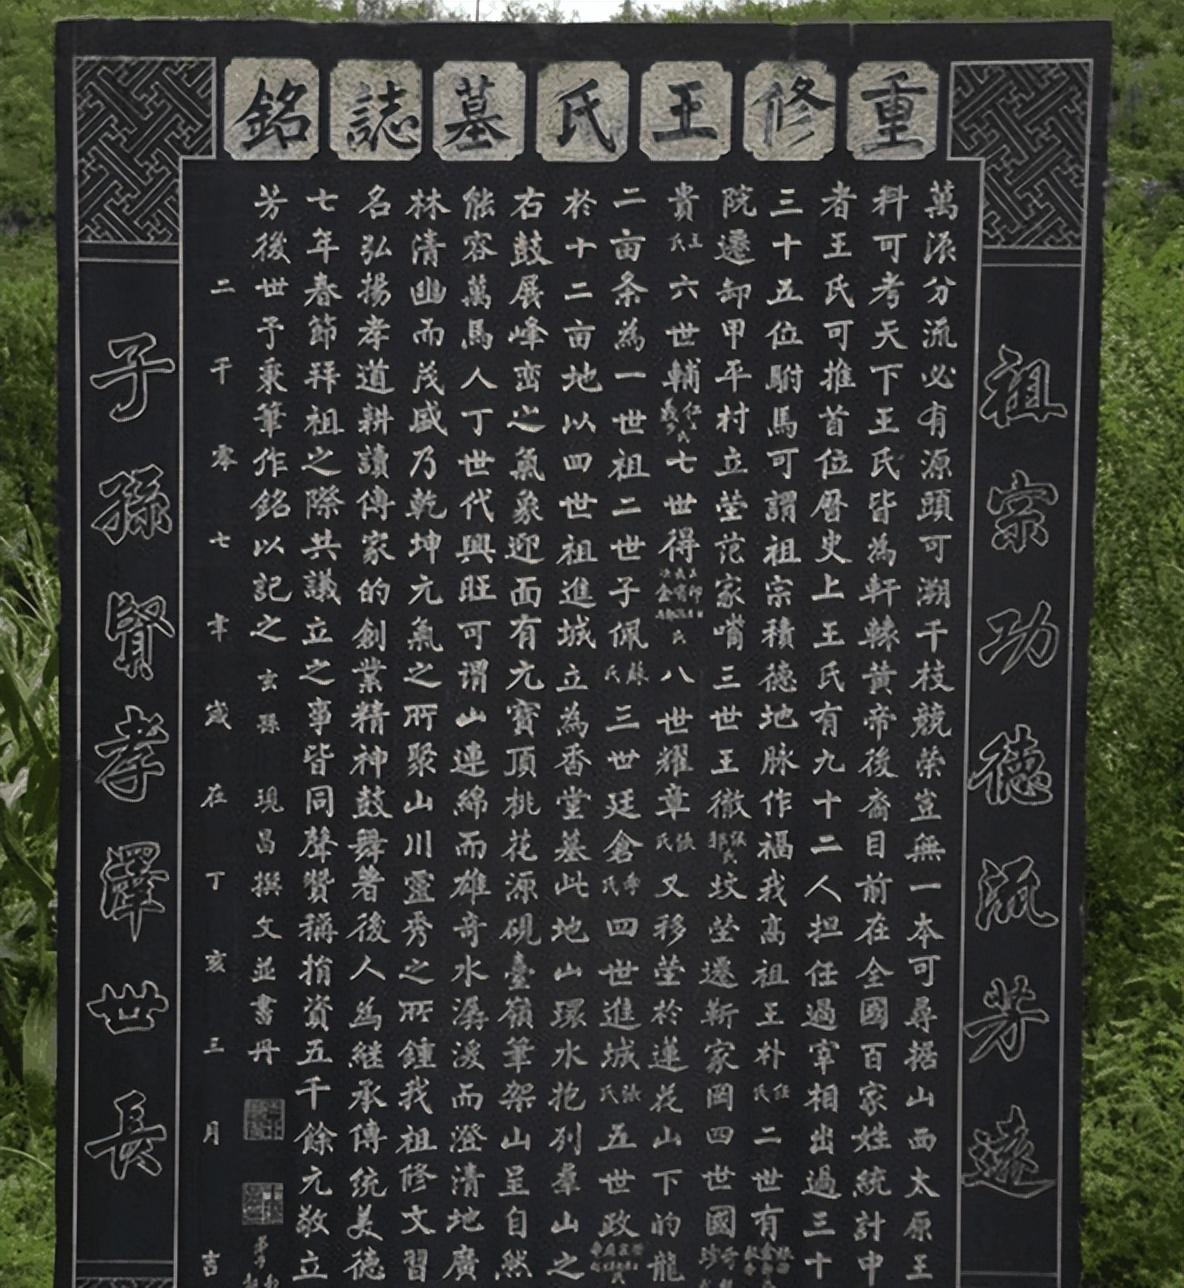 重修王氏墓誌銘
祖宗功德流芳遠
萬派分流必有源頭可溯千枝競榮豈無一本可尋据山西太原王
料可考天下王氏皆為軒轅黃帝後裔目前在全國百家姓統計中
者王氏可推首位曆史上王氏有九十二人担任過宰相出過三十
三十五位駙馬可謂祖宗積德地脉作福我高祖王朴任氏二世有
院遷卸甲平村立塋范家嘴三世王徹張氏郭坟塋遷靳家岡四世國珍
貴王氏六世輔七世得氏八世耀章張氏又移塋於蓮花山下的龍
二亩条為一世祖二世子佩蘇氏三世廷倉李氏四世進城張氏五世政
於十二亩地以四世祖進城立為香堂墓此地山環水抱列羣山之
右鼓展峰巒之氣象迎面有元寶頂桃花源硯臺嶺筆架山呈自然
能容萬馬人丁世代興旺可谓山連綿而雄奇水潺湲而澄清地廣
林清幽而茂盛乃乾坤元氣之所聚山川靈秀之所鍾我祖修文習
名弘揚孝道耕讀傳家的創業精神鼓舞著後人為继承傳统美德
七年春節拜祖之際共議立之事皆同聲贊稱捐資五千餘元敬立
芳後世予秉筆作銘以記之玄孫現昌撰文並書丹
二千零七年歲在丁亥三月吉
子孫賢孝澤世長